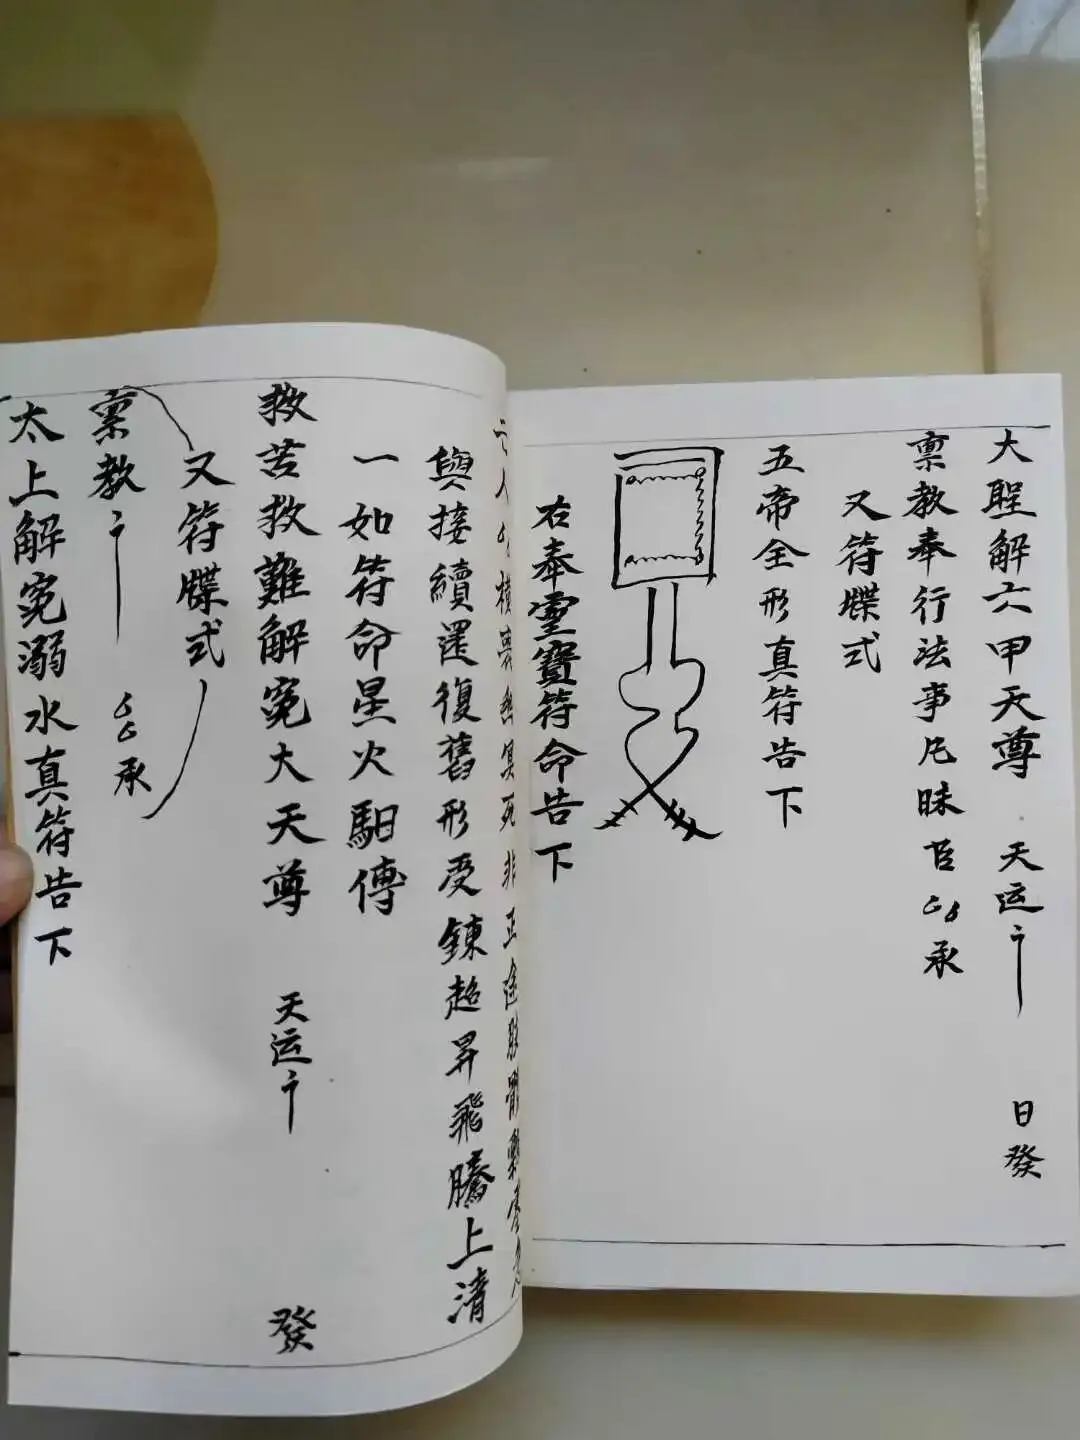 大聖解六甲天尊 天运 日發
禀教奉行法事凡昧臣 承
又符牒式
五帝全形真符告下
右奉靈寶符命告下
横 幽冥死非正途肢體
與接續還復舊形受鍊超昇飛騰上清
一如符命星火馹傳
救苦救難解冤大天尊 天运 發
又符牒式
禀教 承
太上解冤溺水真符告下